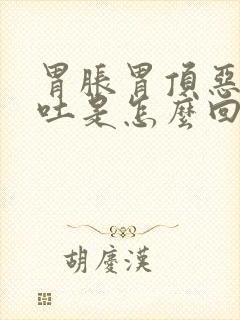 胃脹胃頂惡
吐是怎麼回
胡慶漢